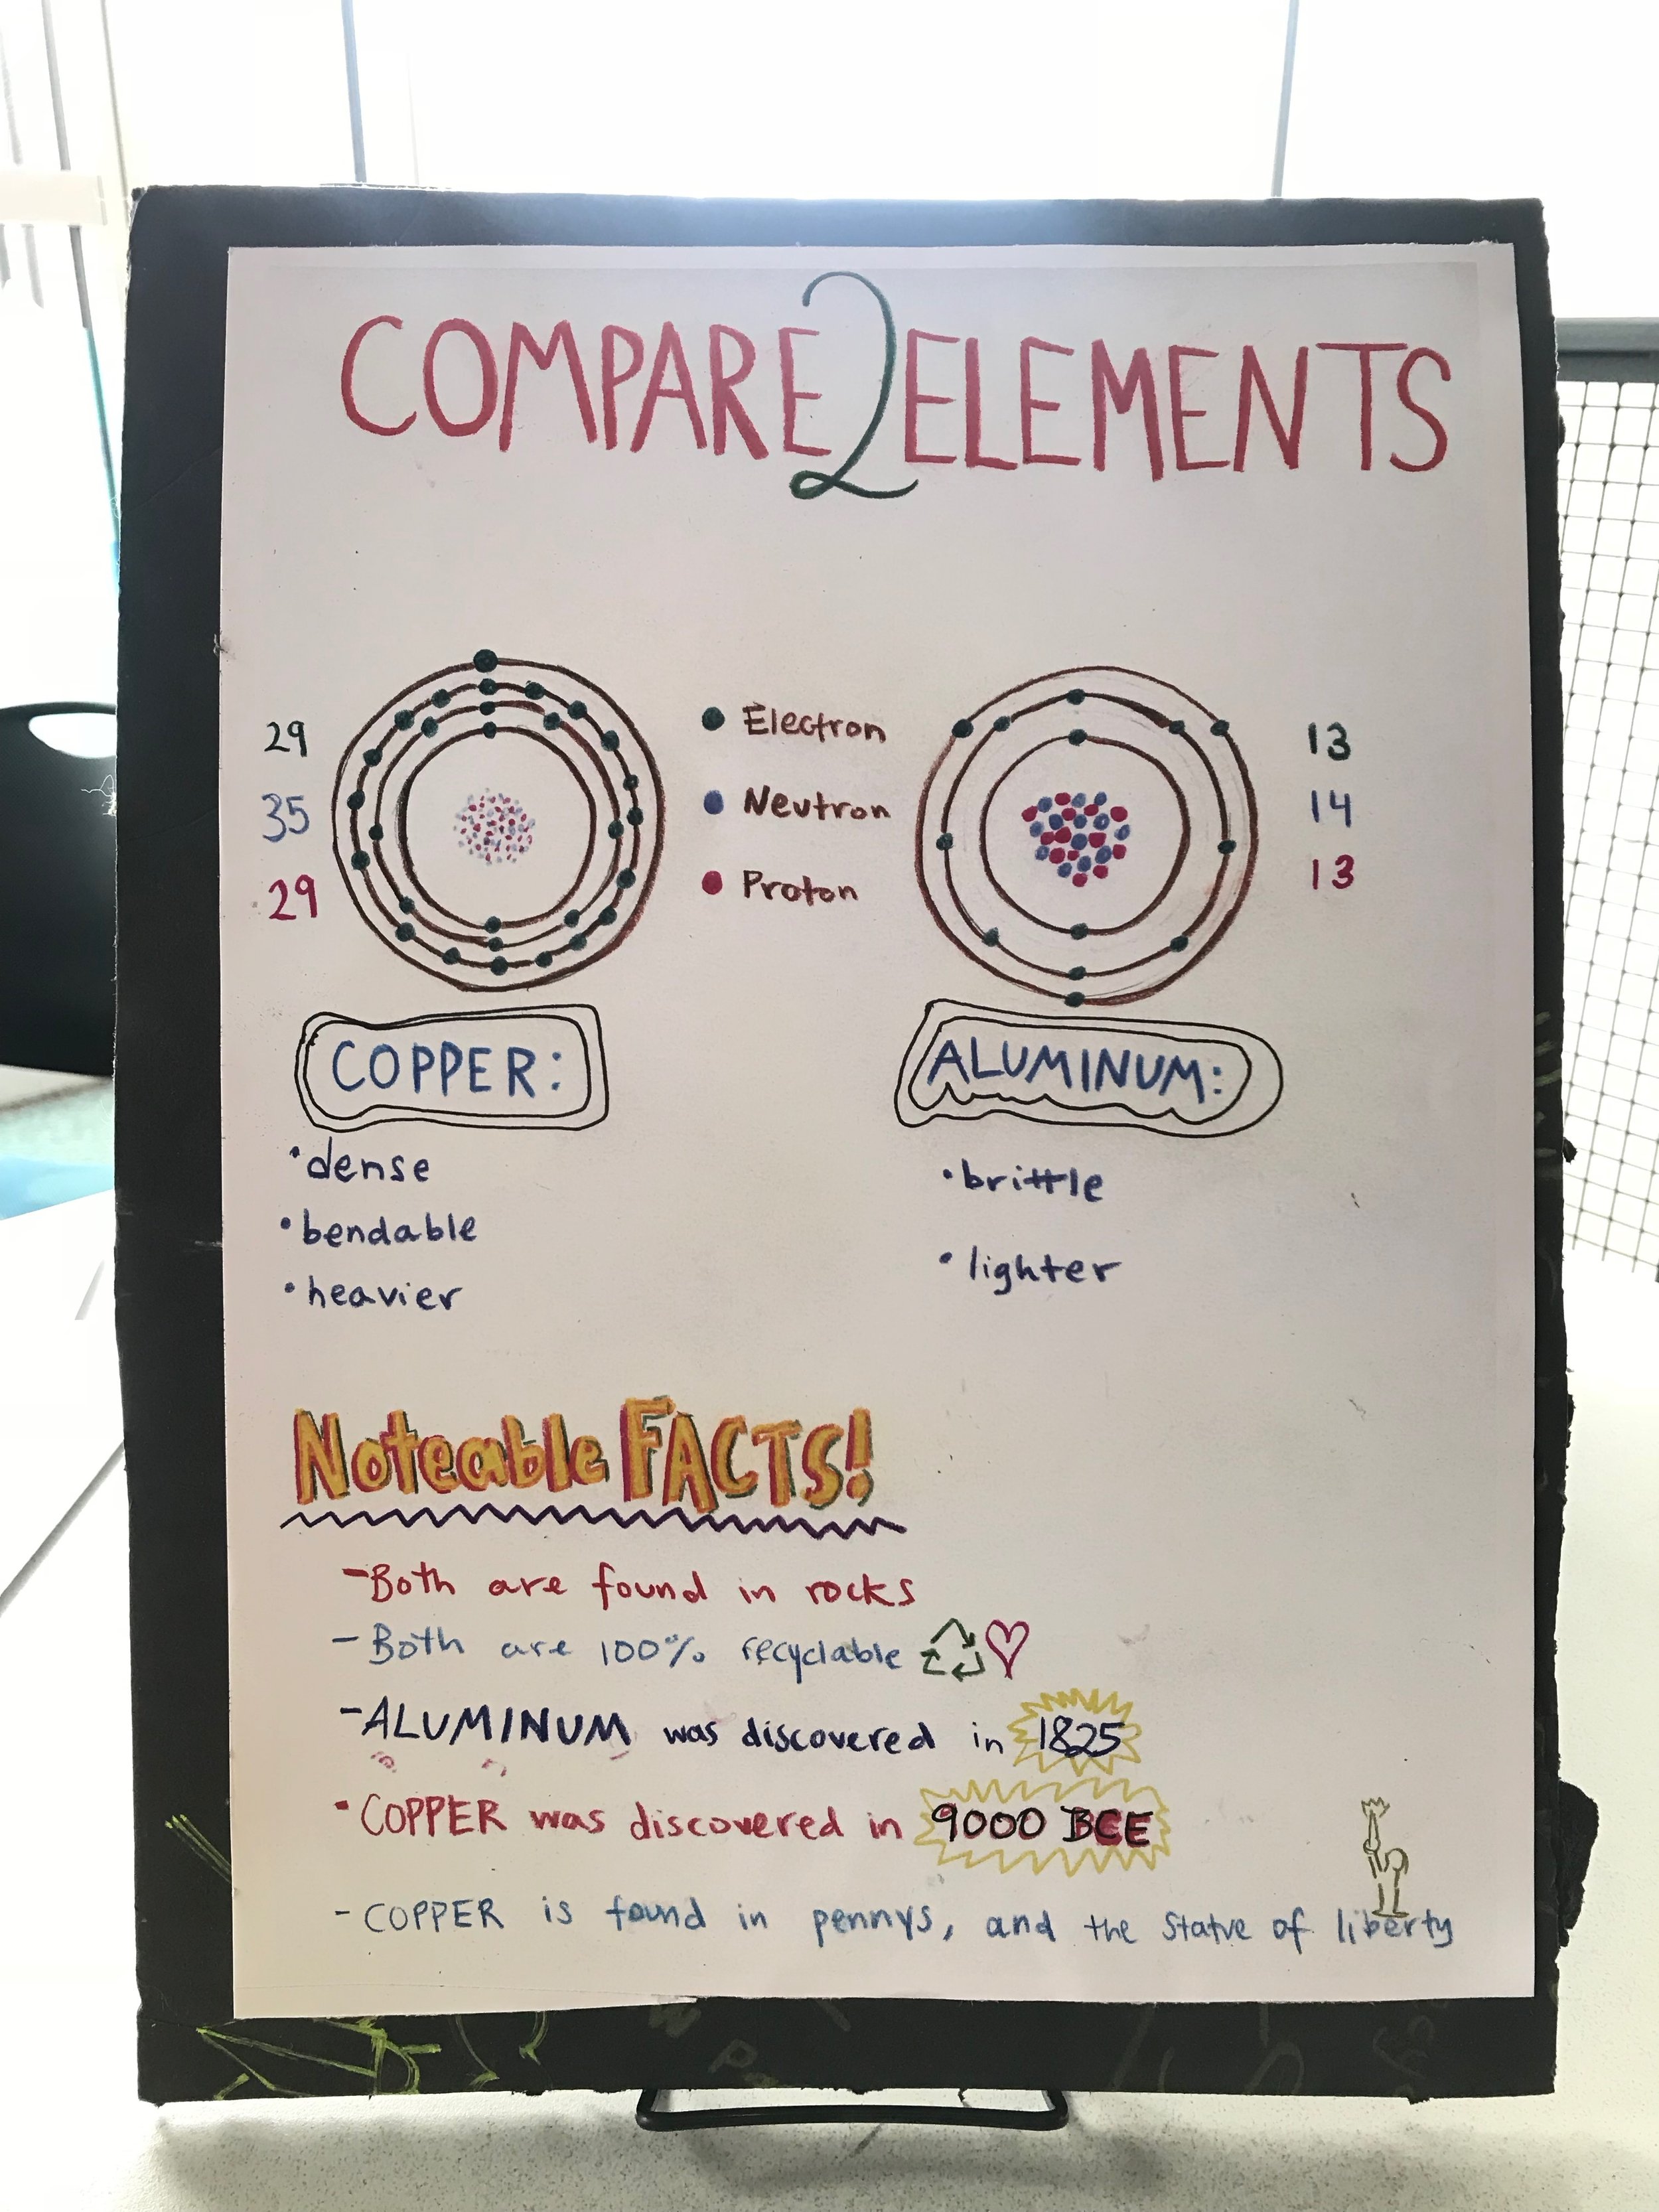 COMPARE 2 ELEMENTS
29
35
29
Electron
Neutron
Proton
13
14
13
COPPER:
•dense
•bendable
•heavier
ALUMINUM:
•brittle
•lighter
Noteable FACTS!
-Both are found in rocks
- Both are 100% recyclable
-ALUMINUM was discovered in 1825
•COPPER was discovered in 9000 BCE
- COPPER is found in pennys, and the statue of liberty